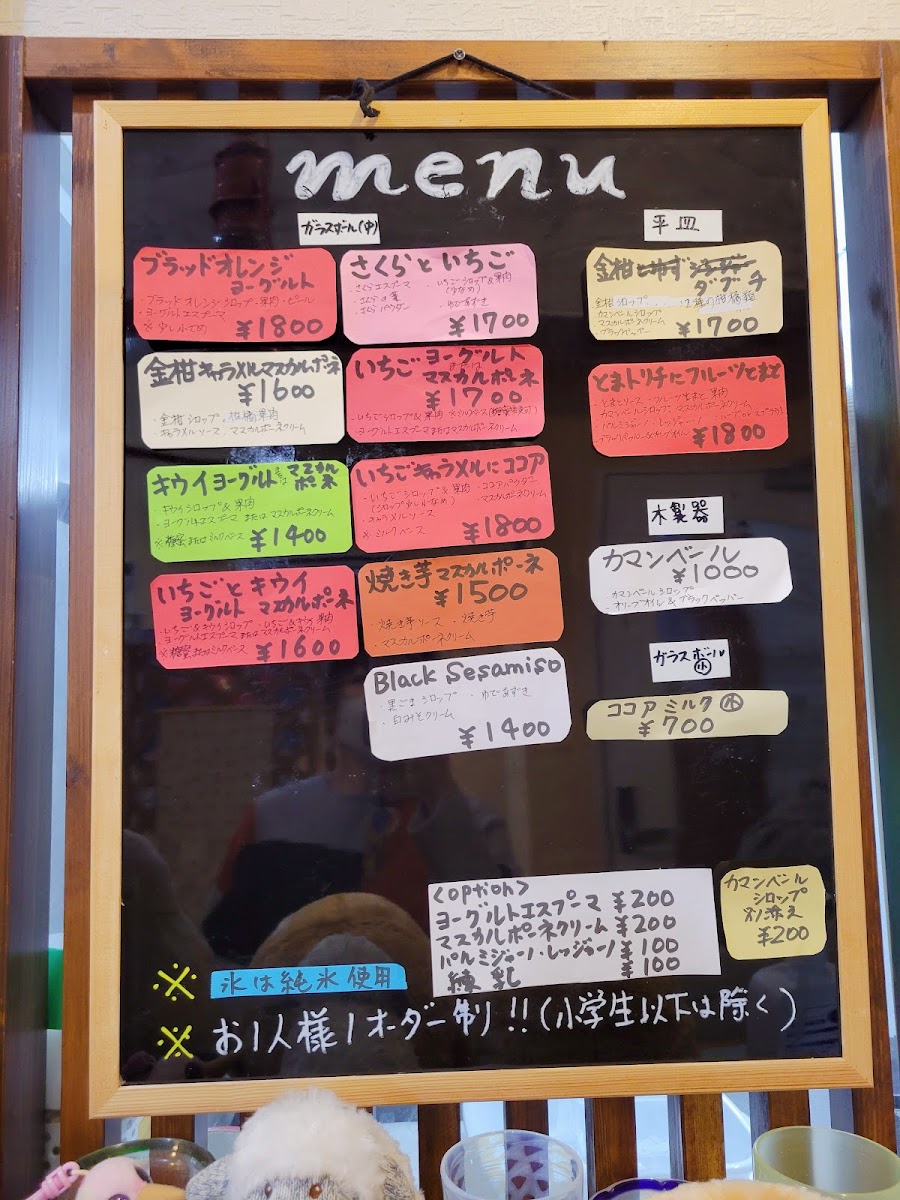 menu
ガラスボール(中)
ブラッドオレンジ
ヨーグルト
・ブラッドオレンジシロップ・果肉・ピール
・ヨーグルトエスプーマ
※少し小さめ
¥1800
さくらといちご
・さくらエスプーマ
・いちごシロップ&果肉
・さくらの
・ゆであずき
・さくらパウダー
¥1700
金柑キャラメルマスカルポーネ
¥1600
・金柑シロップ・柑橘果肉
・キャラメルソース・マスカルポーネクリーム
いちごヨーグルト
または
マスカルポーネ
¥1700
・いちごシロップ&果肉 ※ミルクベース
・ヨーグルトエスプーマまたはマスカルポーネクリーム
キウイヨーグルトまたはマスカルポーネ
・キウイシロップ&果肉
・ヨーグルトエスプーマ または マスカルポーネクリーム
※糖蜜またはミルクベース
¥1400
いちごキャラメルにココア
・いちごシロップ&果肉・ココアパウダー
(シロップ少しなめ)
・マスカルポーネクリーム
・キャラメルソース
※ミルクベース
¥1800
いちごとキウイ
ヨーグルト マスカルポーネ
・いちご&キウイシロップ・いちご&キウイ果肉
・ヨーグルトエスプーマまたはマスカルポーネクリーム
※糖蜜またはミルクベース
¥1600
焼き芋マスカルポーネ
¥1500
・焼き芋ソース・焼き芋
・マスカルポーネクリーム
Black Sesamiso
・黒ごまシロップ・ゆであずき
・白みそクリーム
¥1400
平皿
金柑
ダグチ
金柑シロップ
カマンベールシロップ
マスカルポーネクリーム
ブラックペッパー
¥1700
とまトリチにフルーツとまと
・とまとソース・フルーツとまと果肉
カマンベールシロップ・マスカルポーネクリーム
パルミジャーノ・レッジャーノ
¥1800
木製器
カマンベール
¥1000
・カマンベールシロップ
・オリーブオイル&ブラックペッパー
ガラスボール
小
ココアミルク小
¥700
<option>
ヨーグルトエスプーマ ¥200
マスカルポーネクリーム ¥200
パルミジャーノ・レッジャーノ ¥100
練乳 ¥100
カマンベール
シロップ
別添え
¥200
※ 氷は純氷使用
※ お1人様1オーダー制り!!(小学生以下は除く)